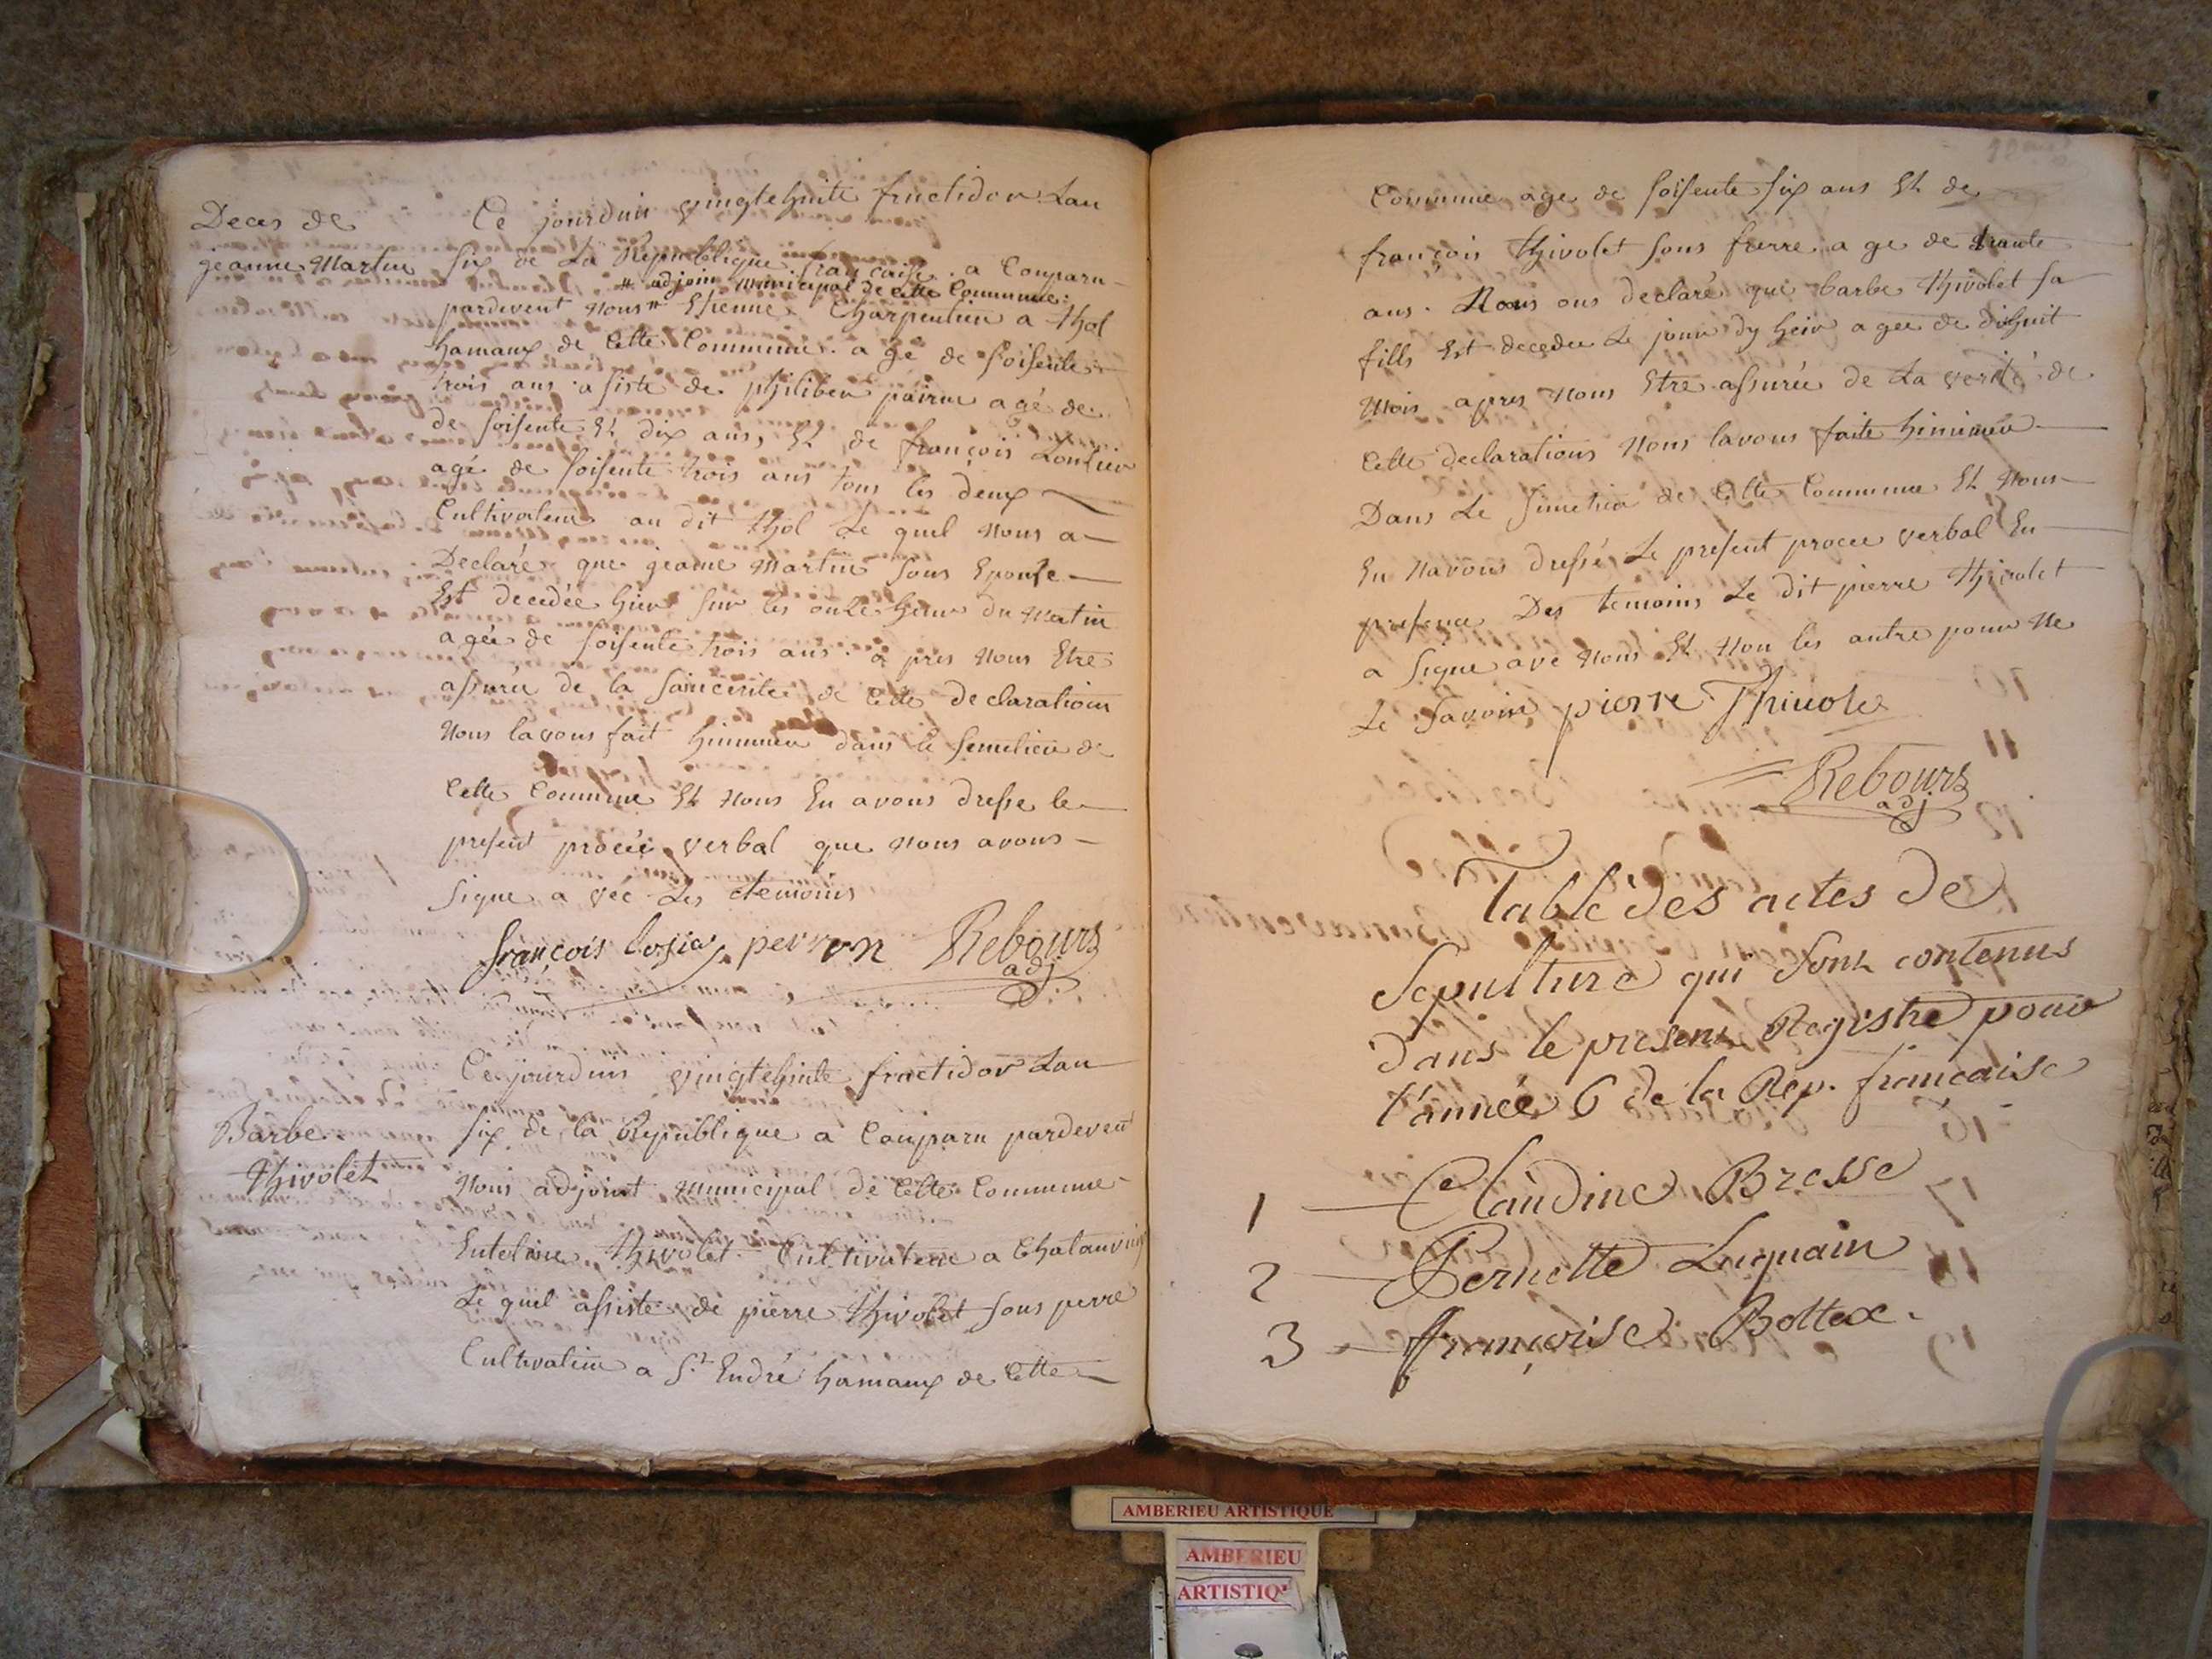 Deces de
geanne Martin
Ce jourduii vingtehuite fructidor Lan
six de La Republique francaise. a Comparu
" adjoin municipal de cette Commune.
pardevent nous " Etienne Charpentier a thol
hamaux de Cette Commune. a gé de soisente
trois ans. a siste de philiber pairru agé de
de soisente Et dix ans, Et de françois
agé de soisente trois ans tous les deux
Cultivateur au dit thol Le quel nous a
Declaré que geanne Martin sous Epouse
Est decedée hier sur les onze heur du matin
agée de soisente trois ans. a pres nous Etre
assurée de la saincerité de Cette declaration
nous lavons fait hinnumer dans le semetiere de
Cette Commune Et nous En avons dresse le
present procée verbal que nous avons
signe a vec Les temoins
françois perron Rebours
adj
Barbe
thivolet
Ce jourduii vingtehuite fructidor Lan
six de la Republique a Comparu pardevent
nous adjoint municipal de Cette Commune
Entoine thivolet Cultivateur a
Le quel assiste de pierre thivolet sous perre
Cultivateur a St. Endré hamaux de Cette
Commune age de soisente six ans Et de
françois thivolet sous frerre a ge de trante
ans. Nous ons declaré que barbe thivolet sa
fills Est decedee Le jour dy heir agee de dixhuit
mois apres nous Etre assurée de La verité de
Cette declarations nous lavons faite hinimer
Dans Le simetier de Cette Commune Et nous
En navons dressé Le present procee verbal En
presence Des temoins Le dit pierre thivolet
a signe ave nous Et non les autre pour ne
Le savoire pierre Thiuole
Rebours
adj
Table des actes de
Sepulture qui sont contenus
dans le present Registre pour
l'année 6 de la Rep. francaise
1 Claudine Bresse
2 Pernette Luquain
3 françoise Bottex.
AMBERIEU ARTISTIQUE
AMBERIEU
ARTISTIQ